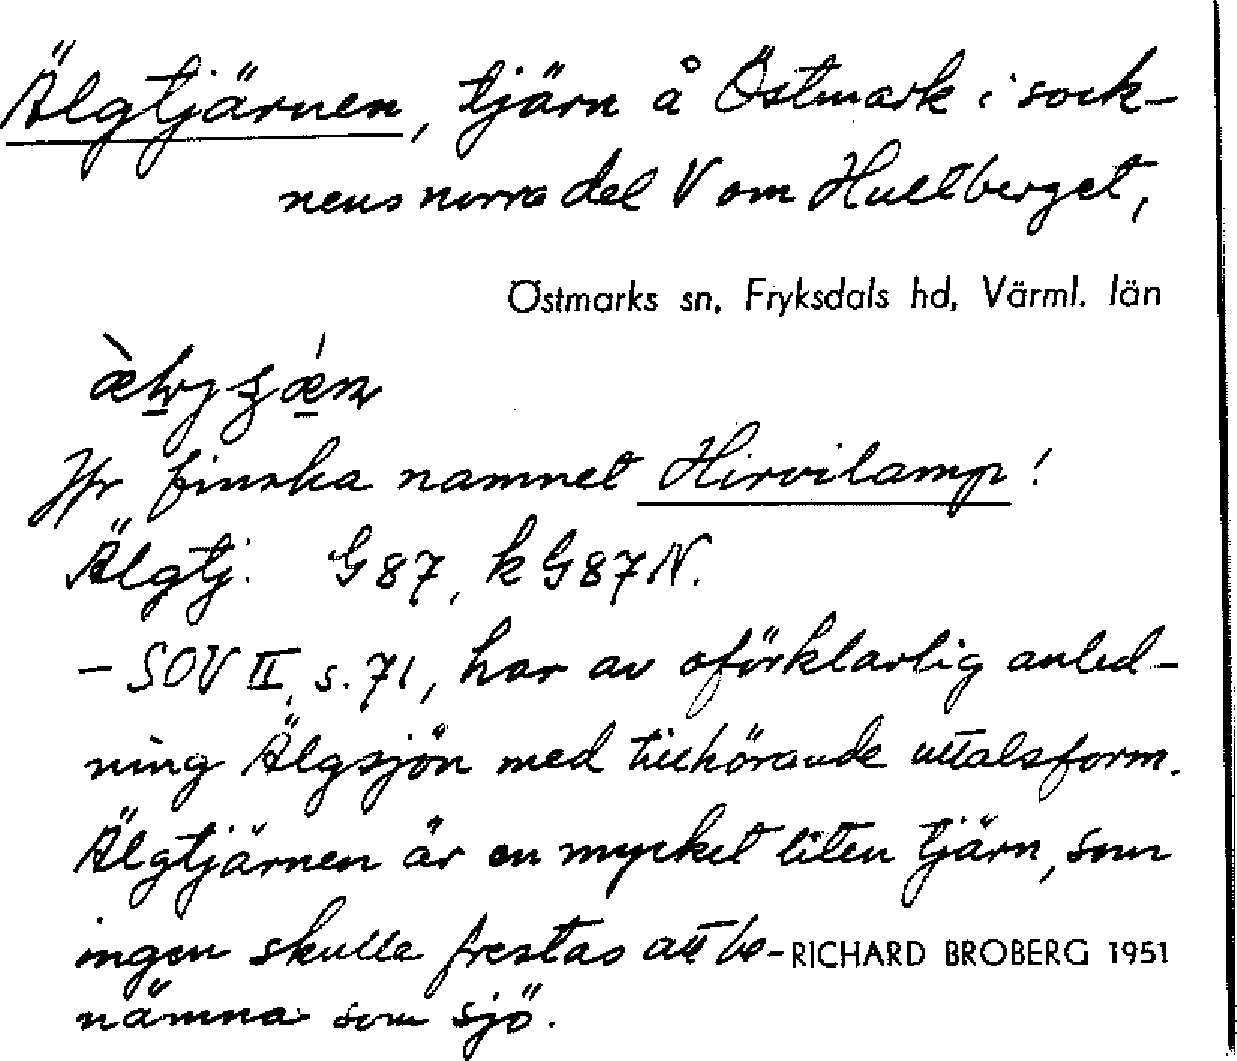 Älgtjärnen, tjärn å Östmark i sock-
nens norra del V om Hultberget,
Östmarks sn, Fryksdals hd, Värml. län
Jfr finska namnet Hirvilamp!
Älgtj. G87, kG87N.
- SOV II, s. 71, har av oförklarlig anled-
ning Älgsjön med tillhörande uttalsform.
Älgtjärnen är en mycket liten tjärn, som
ingen skulle frestas att be-
nämna som sjö.
RICHARD BROBERG 1951